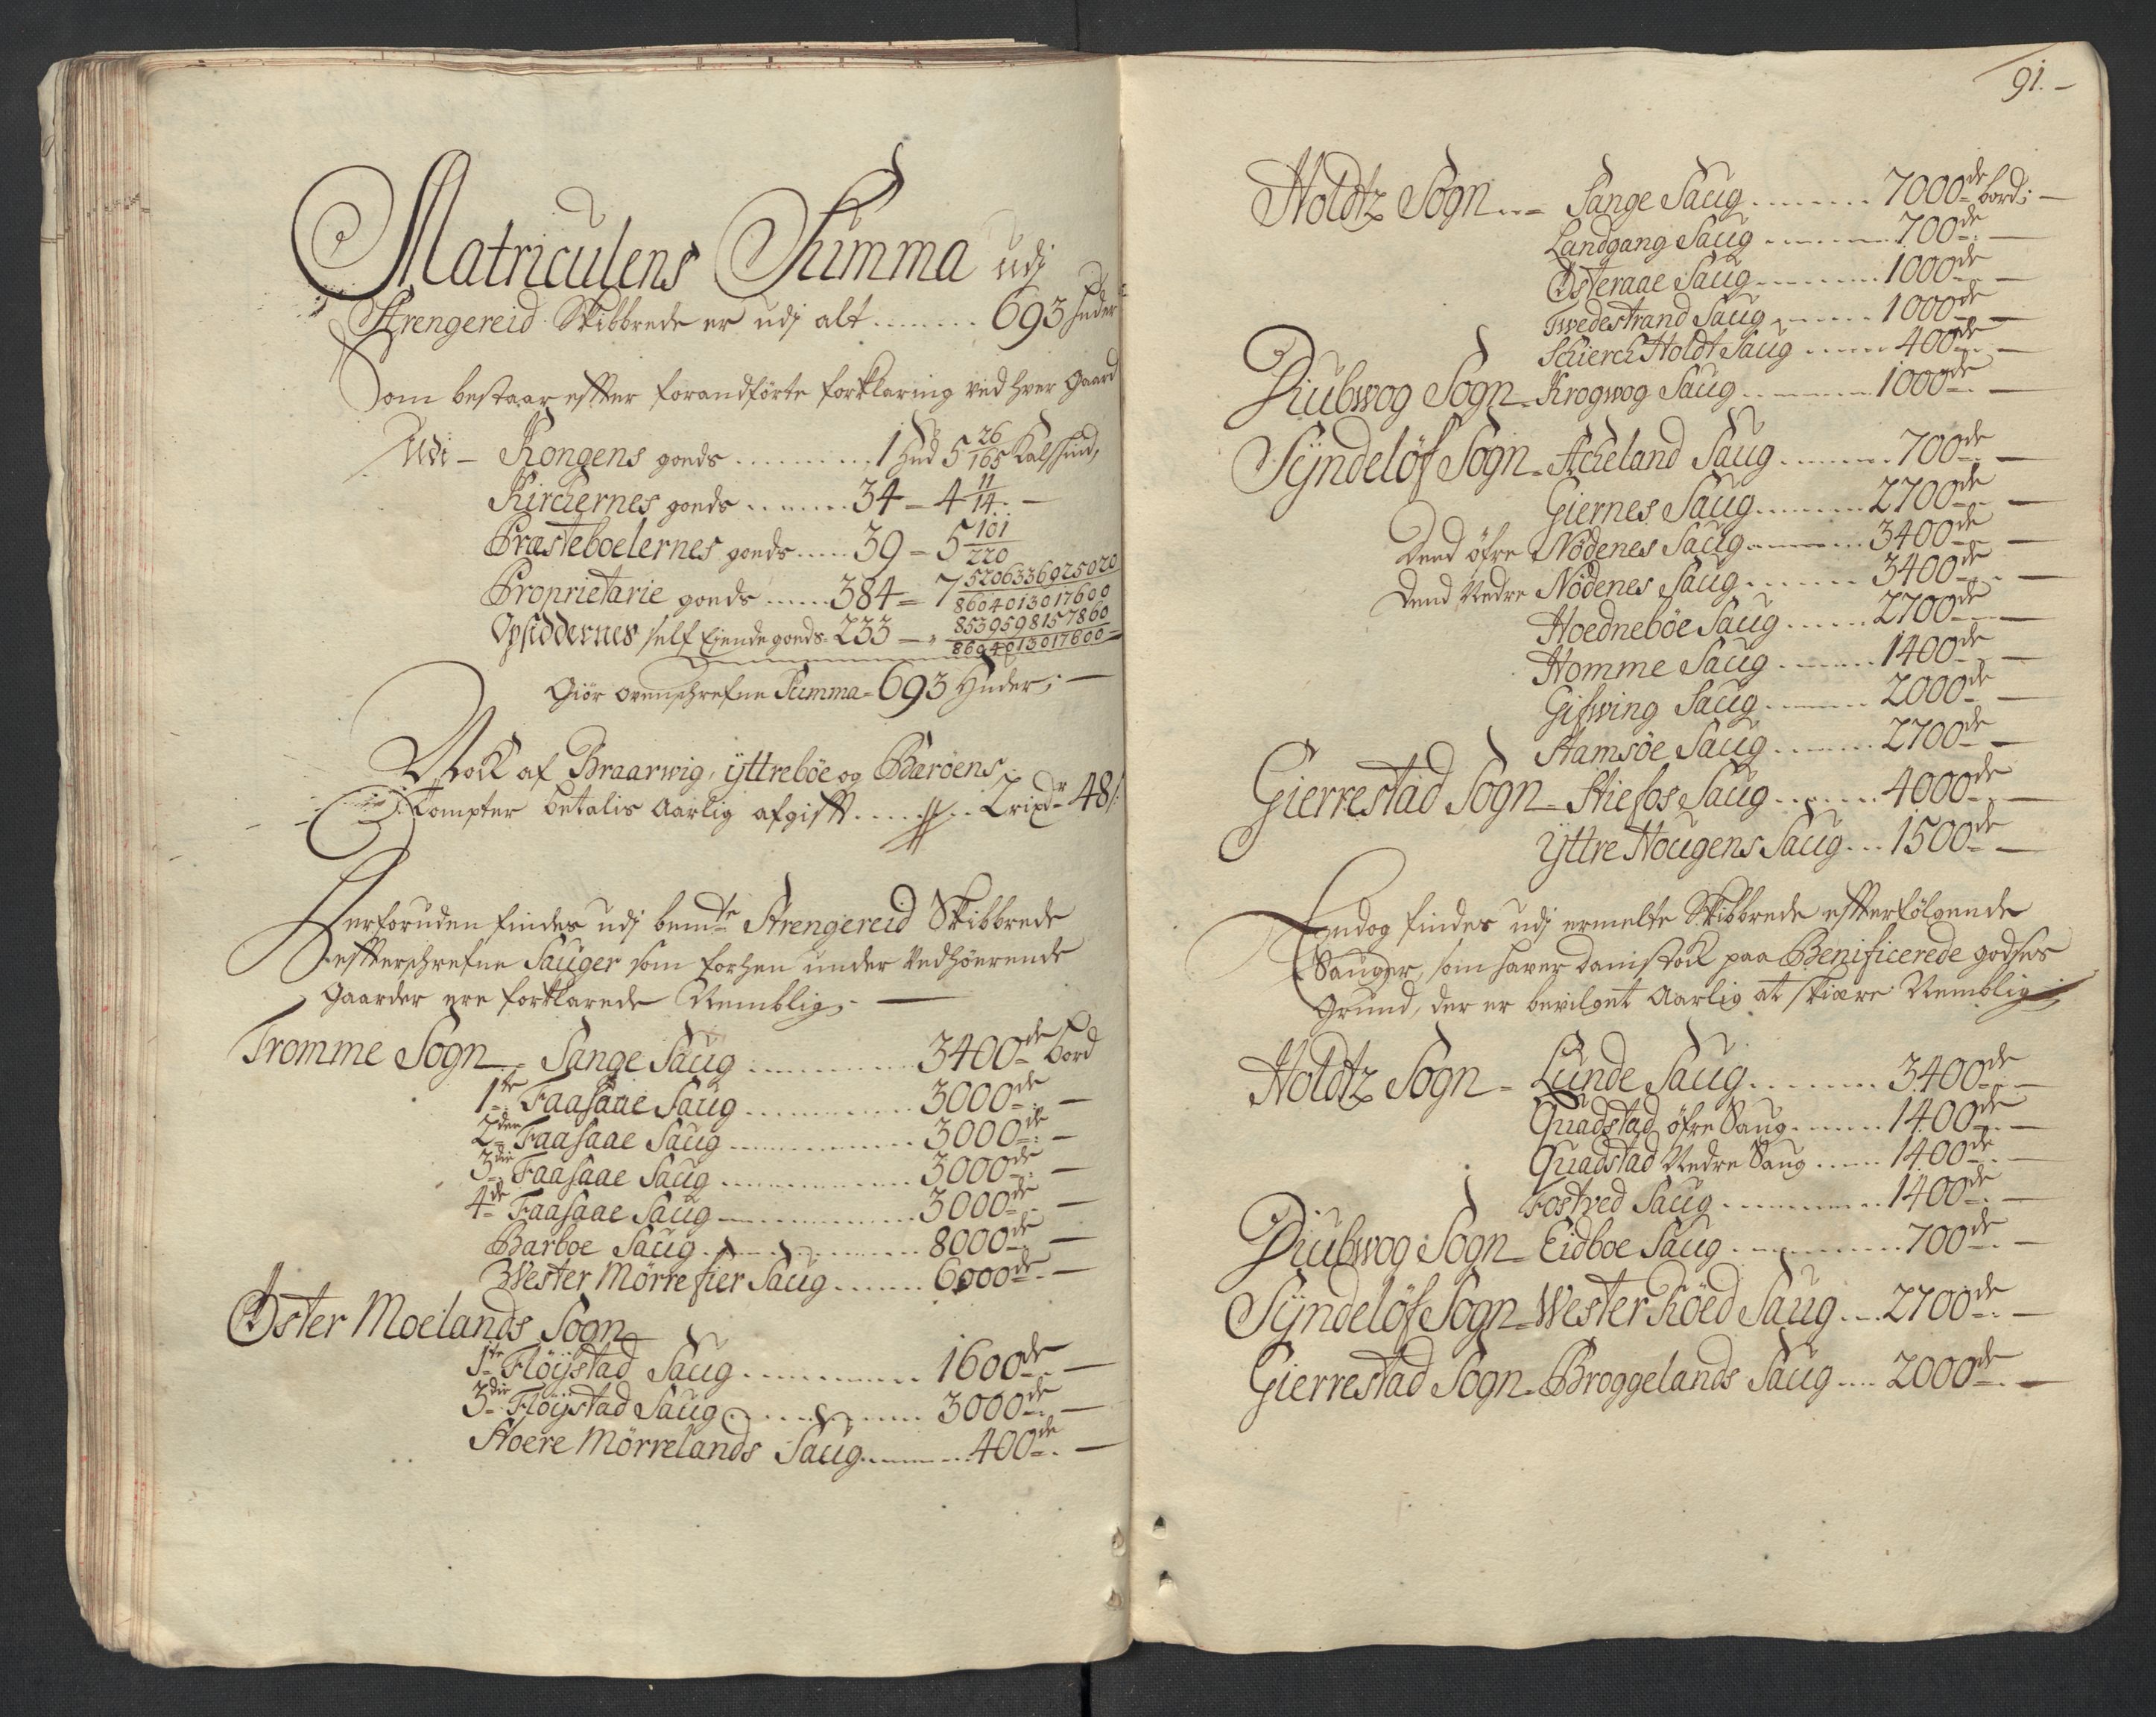 Matriculens Summa udj
Strengereid Skibbrede er udj alt ........ 693 huder
Som bestaar effter forandførte forklaring ved hver Gaard
Udi - Kongens goeds .......... 1 Hud 5 26/165 Kalfskind,
Kirckernes goeds ....... 34 - 4 11/14. -
Præsteboelernes goeds ..... 39 - 5 101/220
Proprietarie goeds ...... 384 - 7 5206336925020/8604013017600
Opsiddernes self Eiende goeds. 233 - „ 8539598157860/8604013017600
Giör ovenschrefne Summa - 693 Huder; -
Nock af Braarwig, ÿttrebøe og Barøens
Tompter betalis Aarlig afgifft ........ 2 rixdr 48 /:
Herforuden findes udj bemte Strengereid Skibbrede
effterschrefne Sauger som forhen under Vedhöerende
Gaarder ere forklarede Nemblig; -
Tromme Sogn - Sange Saug ............ 3400de bord
1te Faasaae Saug ............ 3000de. -
2den Faasaae Saug ............ 3000de. -
3die Faasaae Saug ............ 3000de. -
4de Faasaae Saug ............ 3000de. -
Barboe Saug ............ 8000de. -
Wester Mörrefier Saug ....... 6000de. -
Øster Moelands Sogn
1te Flöÿstad Saug .......... 1600de. -
3die Flöÿstad Saug .......... 3000de. -
Stoere Mörrelands Saug ......... 400de. -
91. -
Holdtz Sogn - Sange Saug ........ 7000de bord; -
Landgang Saug ........ 700de. -
Østeraae Saug ........ 1000de. -
Twedestrand Saug ...... 1000de. -
Schierck Holdt Saug ..... 400de. -
Diubwog Sogn - Krogwog Saug ......... 1000de. -
Sÿndelöf Sogn - Ackeland Saug ....... 700de. -
Giernes Saug ....... 2700de. -
Dend öfre Nödenes Saug ........ 3400de. -
Dend Nedre Nödenes Saug ....... 3400de. -
Hoedneböe Saug ...... 2700de. -
Homme Saug ....... 1400de. -
Gifwing Saug ....... 2000de. -
Stamsöe Saug ....... 2700de. -
Gierrestad Sogn - Stiefos Saug ....... 4000de. -
Ÿttre Hougens Saug ... 1500de. -
Endog findes udj ermelte Skibbrede effterfölgende
Sauger, som haver damstock paa Benificerede godses
Grund, der er bevilget Aarlig at skiære Nemblig;
Holdtz Sogn - Lunde Saug ........ 3400de. -
Quadstad öfre Saug ...... 1400de. -
Quadstad Nedre Saug ..... 1400de. -
Fostved Saug .......... 1400de. -
Diubwog Sogn - Eidboe Saug .......... 700de. -
Sÿndelöf Sogn - Wester Köed Saug ... 2700de. -
Gierrestad Sogn - Broggelands Saug .... 2000de. -